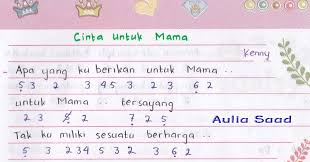 Cinta Untuk Mama
Kenny
Apa yang ku berikan untuk Mama . .
5 3 2 3 4 5 3 2 3 6 2
untuk Mama . . tersayang
2 3 5 2 7 2 5
Aulia Saad
Tak ku miliki sesuatu berharga . .
5 3 2 3 4 5 3 2 3 6 2